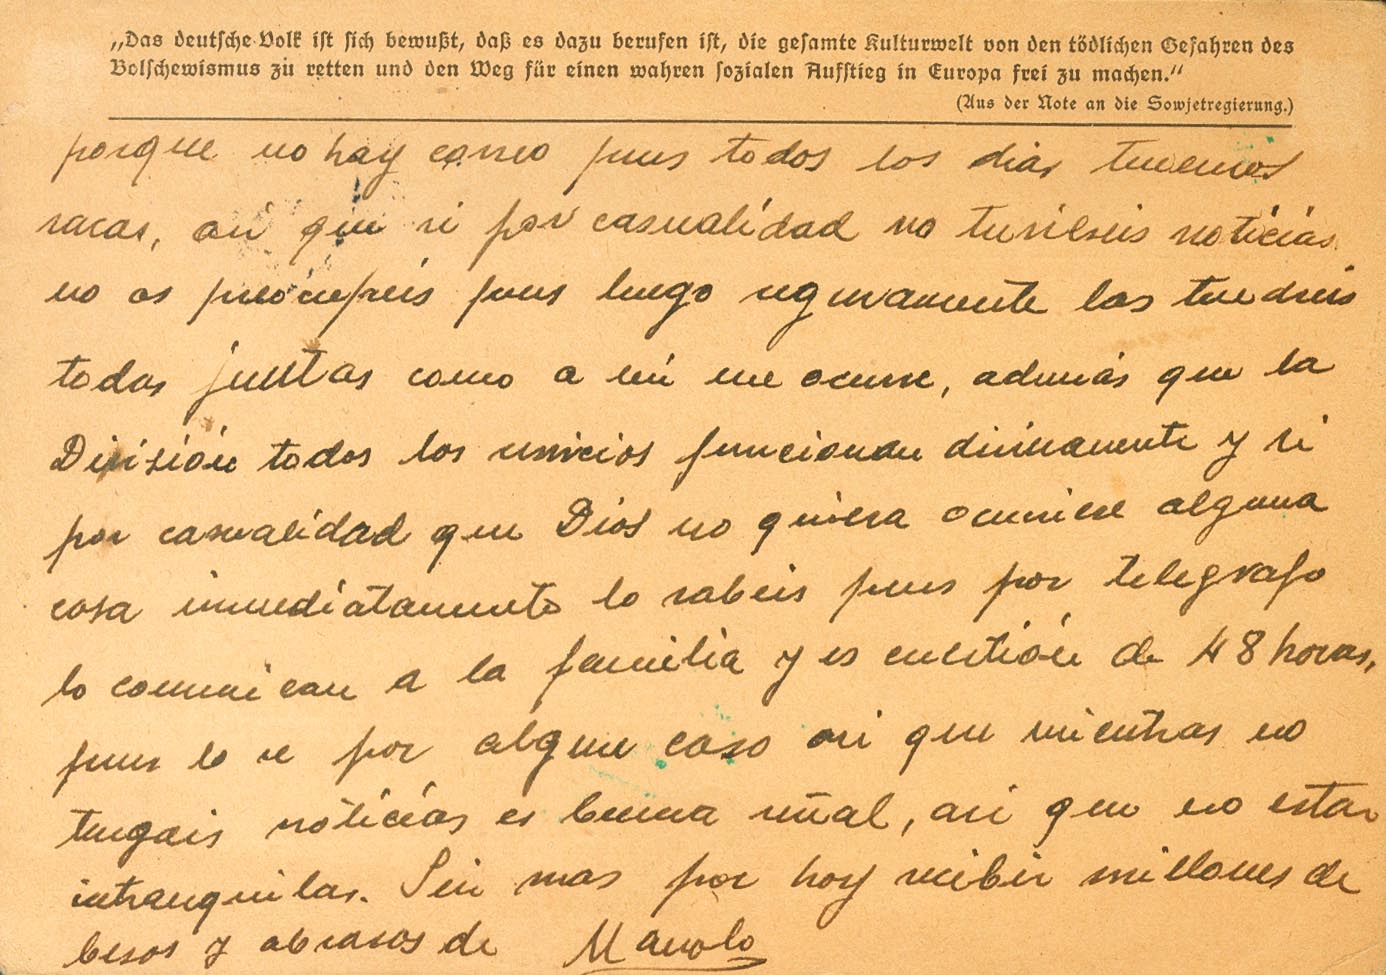 „Das deutsche Volk ist sich bewußt, daß es dazu berufen ist, die gesamte Kulturwelt von den tödlichen Gefahren des
Bolschewismus zu retten und den Weg für einen wahren sozialen Aufstieg in Europa frei zu machen.“
(Aus der Note an die Sowjetregierung.)
porque no hay correo pues todos los dias tenemos
sacas, asi que si por casualidad no tuvieseis noticias
no os preocupeis pues luego seguramente las tendreis
todas juntas como a mi me ocurre, además que la
División todos los servicios funcionan divinamente y si
por casualidad que Dios no quiera ocurriese alguna
cosa inmediatamente lo sabeis pues por telegrafo
lo comunican a la familia y es cuestión de 48 horas,
pues lo se por algun caso asi que mientras no
tengais noticias es buena señal, asi que no estar
intranquilas. Sin mas por hoy recibir millones de
besos y abrasos de Manolo